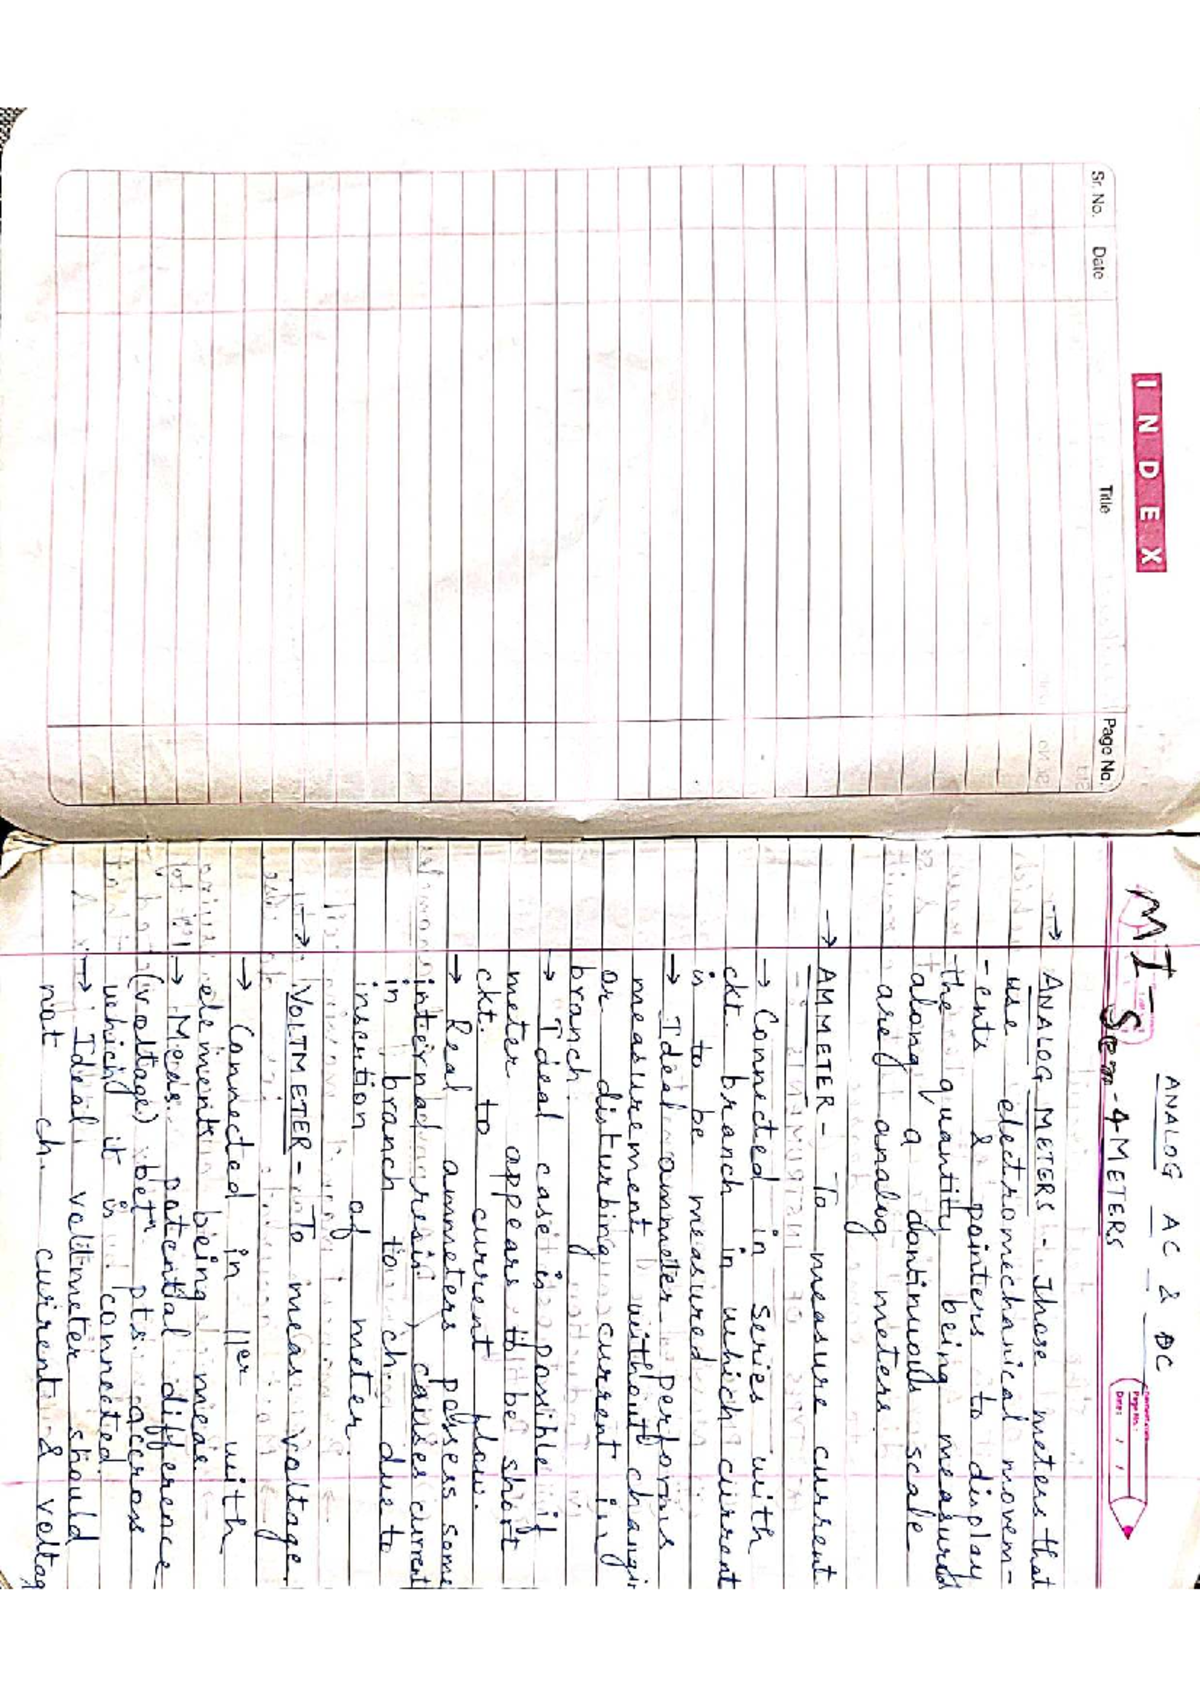 INDEX
Sr. No. Date Title Page No.
ANALOG AC & DC
MI-Sem-4-METERS
Page No.:
Date: / /
→ ANALOG METERS - Those meters that
use electromechanical movem-
-ents & pointers to display
the quantity being measured
along a continuous scale
are analog meters.
→ AMMETER - To measure current.
→ Connected in series with
ckt. branch in which current
is to be measured
→ Ideal ammeter performs
measurement without changi
or disturbing current in
branch.
→ Ideal case is possible if
meter appears to be short
ckt. to current flow.
→ Real ammeters possess some
internal resis, causes current
in branch to ch. due to
insertion of meter.
→ VOLTMETER - To meas. voltage.
→ Connected in ller with
elements being meas
→ Meas. potential difference
(voltage) betn pts. accross
which it is connected.
→ Ideal voltmeter should
not ch. current & voltag